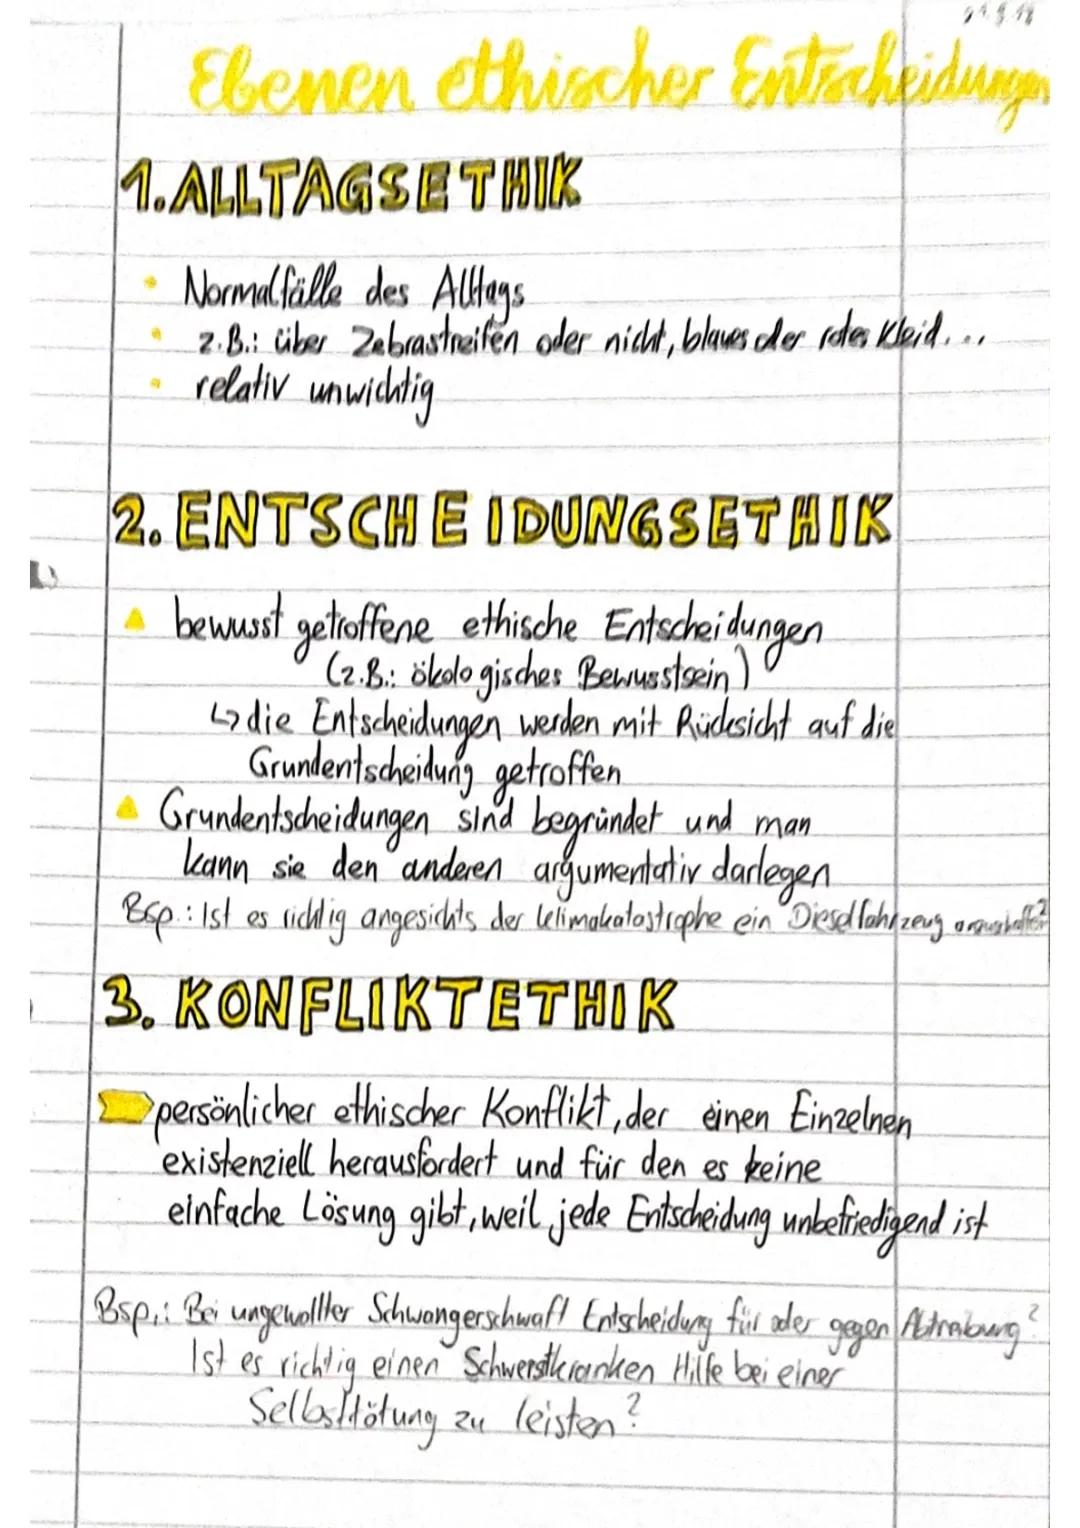 Ebenen ethischer Entscheidungen
1. ALLTAGSETHIK
• Normalfälle des Alltags
• z.B.: über Zebrastreifen oder nicht, blaues oder rotes Kleid...
• relativ unwichtig
2. ENTSCHEIDUNGSETHIK
bewusst getroffene ethische Entscheidungen
(z.B.: ökologisches Bewusstsein)
↳ die Entscheidungen werden mit Rücksicht auf die
Grundentscheidung getroffen
Grundentscheidungen sind begründet und man
kann sie den anderen argumentativ darlegen
Bsp.: Ist es richtig angesichts der Klimakatastrophe ein Dieselfahrzeug anzuschaffen?
3. KONFLIKTETHIK
persönlicher ethischer Konflikt, der einen Einzelnen
existenziell herausfordert und für den es keine
einfache Lösung gibt, weil jede Entscheidung unbefriedigend ist
Bsp.: Bei ungewollter Schwangerschaft Entscheidung für oder gegen Abtreibung?
Ist es richtig einen Schwerstkranken Hilfe bei einer
Selbsttötung zu leisten?